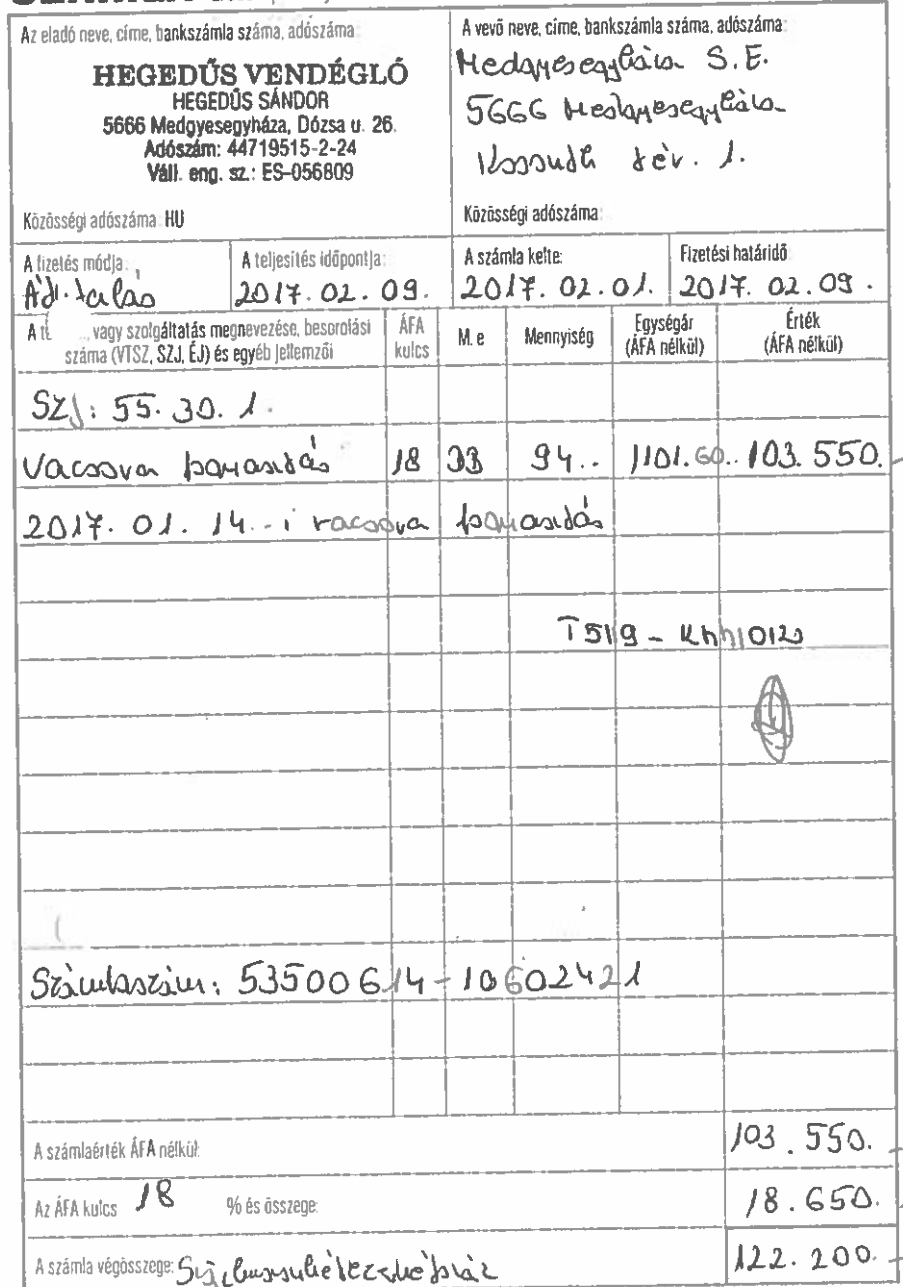 Az eladó neve, címe, bankszámla száma, adószáma:
HEGEDŰS VENDÉGLŐ
HEGEDŰS SÁNDOR
5666 Medgyesegyháza, Dózsa u. 26.
Adószám: 44719515-2-24
Váll. eng. sz.: ES-056809
Közösségi adószáma: HU
A vevő neve, címe, bankszámla száma, adószáma:
Medgyesegyháza S.E.
5666 Medgyesegyháza
Kossuth tér. 1.
Közösségi adószáma:
A fizetés módja:
Átutalás
A teljesítés időpontja:
2017. 02. 09.
A számla kelte:
2017. 02. 01.
Fizetési határidő
2017. 02. 09.
vagy szolgáltatás megnevezése, besorolási
száma (VTSZ, SZJ, ÉJ) és egyéb jellemzői
ÁFA kulcs
M. e
Mennyiség
Egységár (ÁFA nélkül)
Érték (ÁFA nélkül)
SZJ: 55. 30. 1.
Vacsora 18 94.. 1101.60.. 103.550.
2017. 01. 14.-i vacsora
Számlaszám: 53500614-10602421
A számlaérték ÁFA nélkül: 103.550.
Az ÁFA kulcs 18 % és összege: 18.650.
A számla végösszege: 122.200.